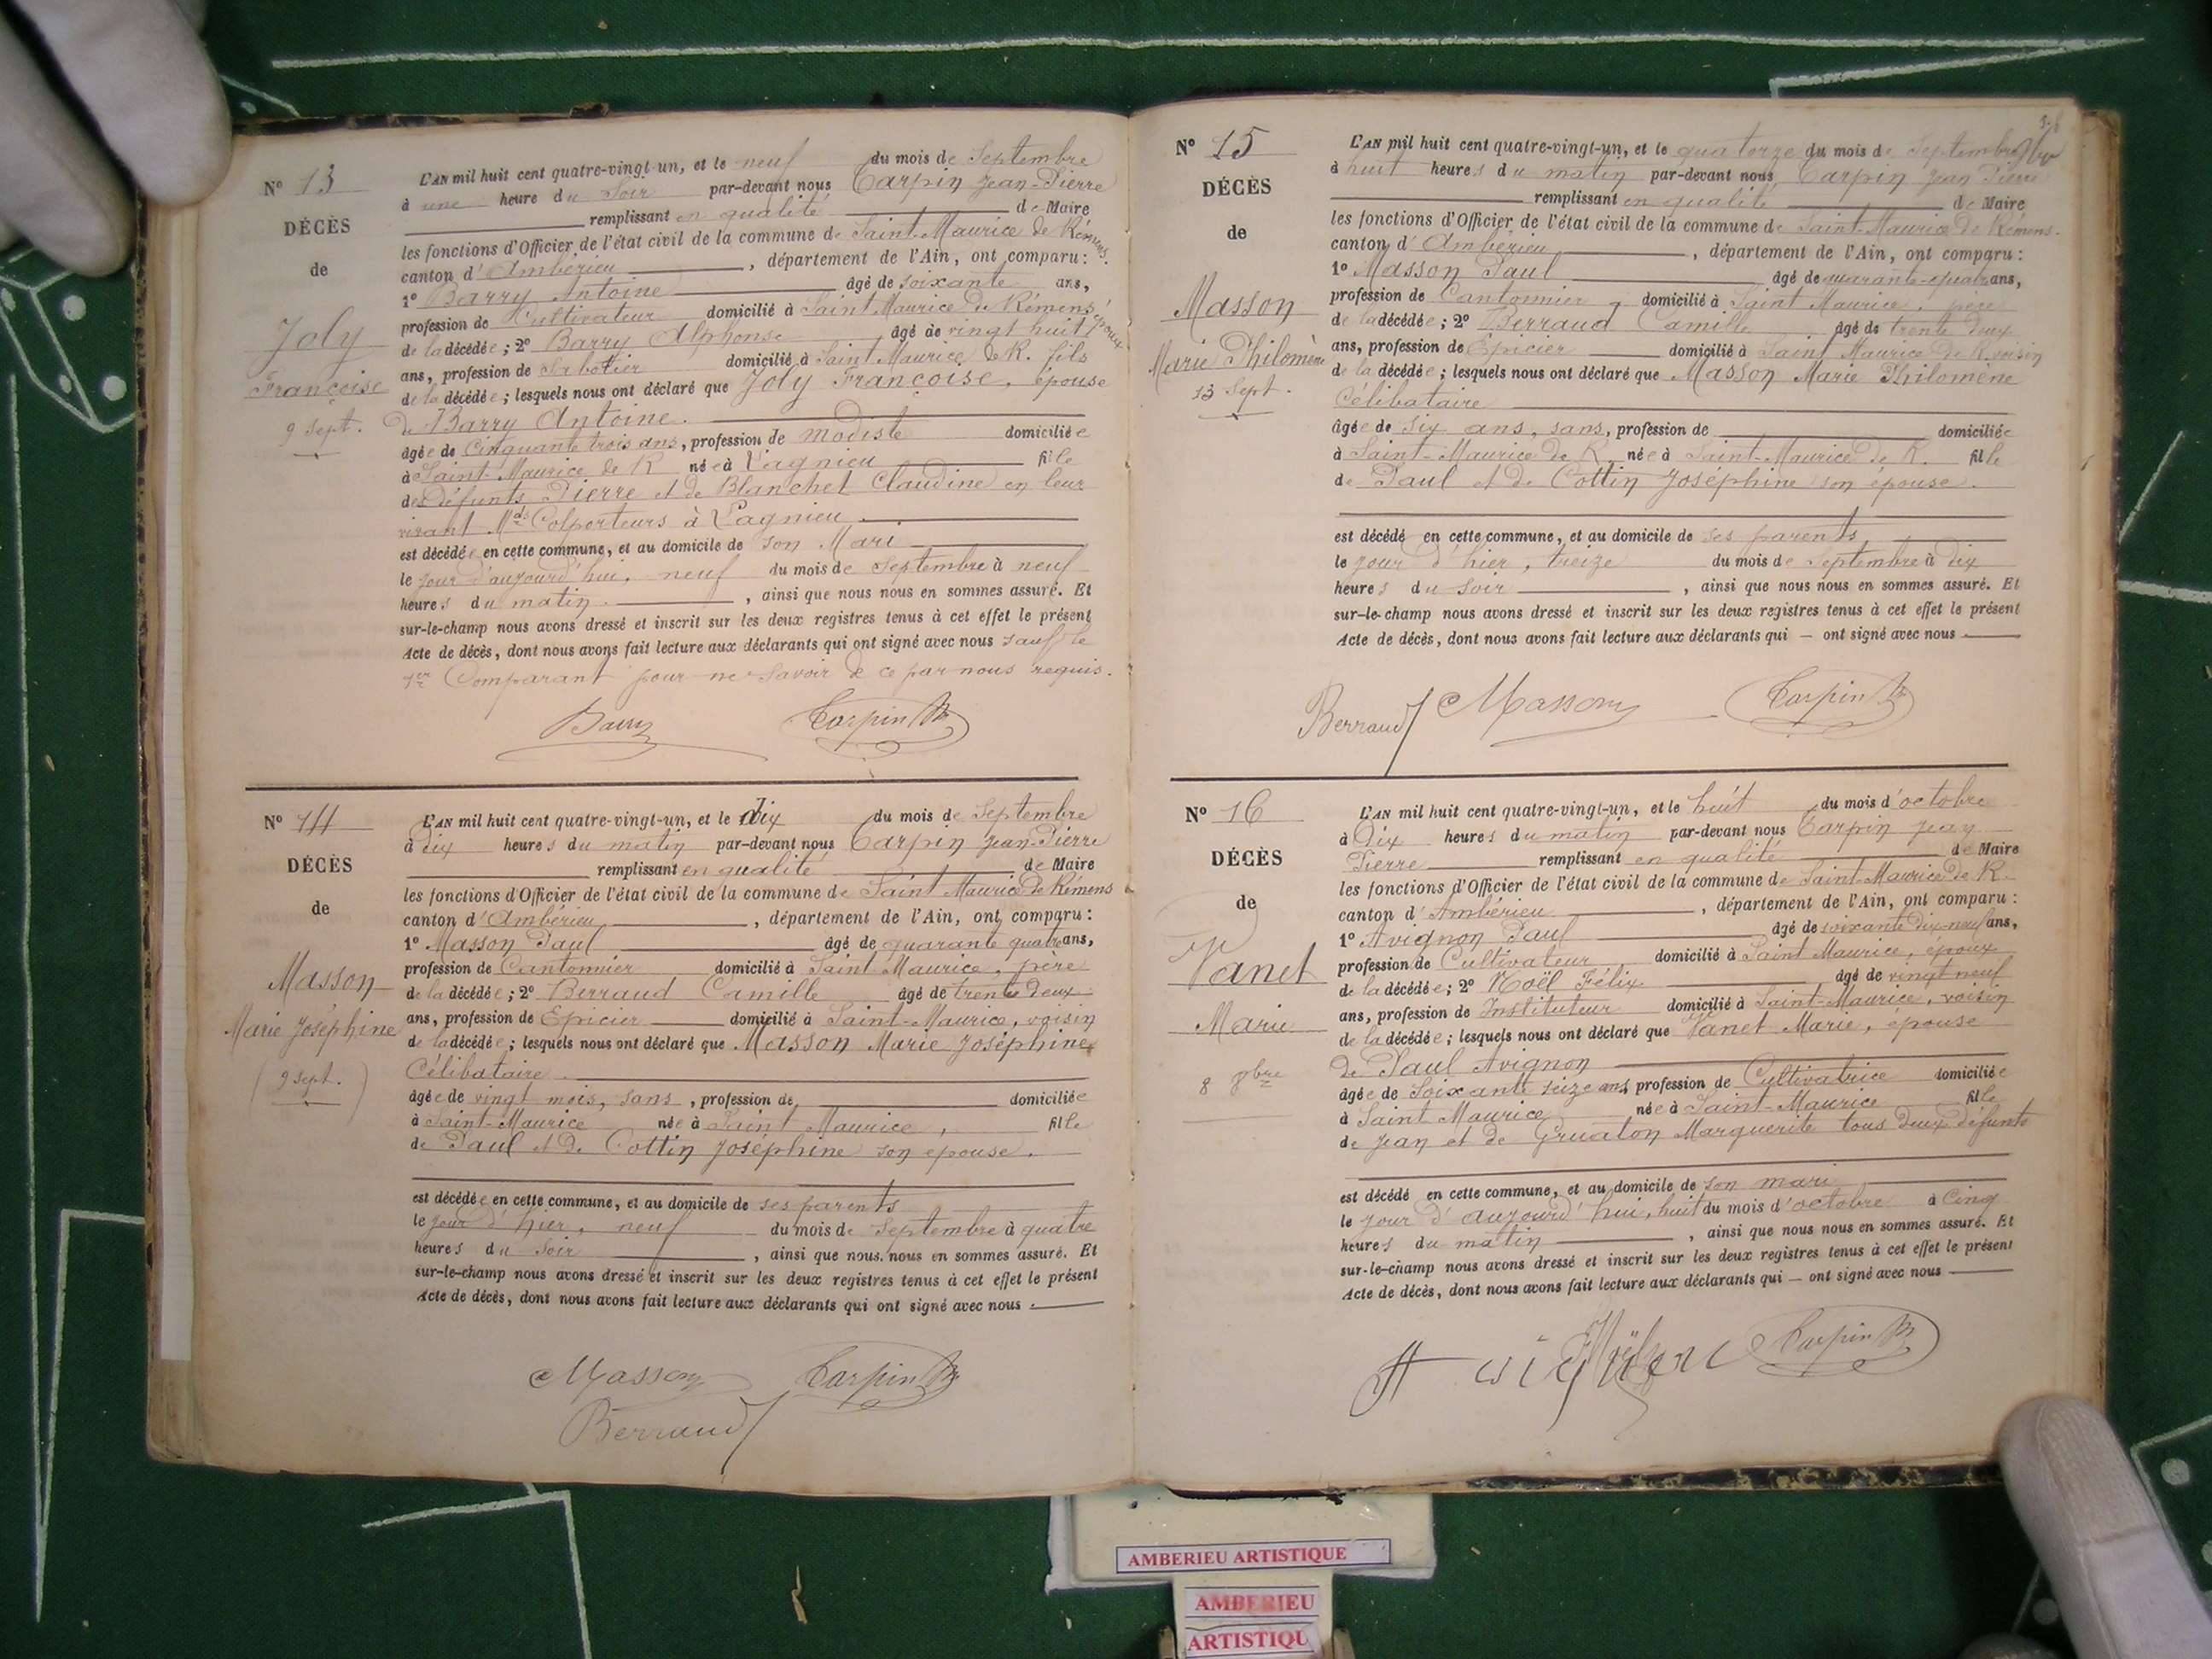 N° 13
DÉCÈS
de
Joly
Françoise
9 sept.
L'AN mil huit cent quatre-vingt-un, et le neuf du mois de Septembre
à une heure du Soir par-devant nous Carpin Jean-Pierre
remplissant en qualité de Maire
les fonctions d'Officier de l'état civil de la commune de Saint-Maurice de Rémens.
canton d'Ambérieu, département de l'Ain, ont comparu:
1° Barry Antoine âgé de soixante ans,
profession de Cultivateur domicilié à Saint Maurice de Rémens époux
de la décédée; 2° Barry Alphonse âgé de vingt huit
ans, profession de Sabotier domicilié à Saint Maurice de R. fils
de la décédée; lesquels nous ont déclaré que Joly Françoise, épouse
de Barry Antoine.
âgée de Cinquante trois ans, profession de modiste domiciliée
à Saint-Maurice de R née à Lagnieu fille
des défunts Pierre et de Blanchet Claudine en leur
vivant Mds Colporteurs à Lagnieu
est décédée en cette commune, et au domicile de son Mari
le jour d'aujourd'hui, neuf du mois de Septembre à neuf
heures du matin, ainsi que nous nous en sommes assuré. Et
sur-le-champ nous avons dressé et inscrit sur les deux registres tenus à cet effet le présent
Acte de décès, dont nous avons fait lecture aux déclarants qui ont signé avec nous sauf le
1er Comparant pour ne savoir de ce par nous requis.
Barry Carpin
N° 14
DÉCÈS
de
Masson
Marie Joséphine
(9 sept.)
L'AN mil huit cent quatre-vingt-un, et le dix du mois de Septembre
à dix heures du matin par-devant nous Carpin Jean-Pierre
remplissant en qualité de Maire
les fonctions d'Officier de l'état civil de la commune de Saint Maurice de Rémens
canton d'Ambérieu, département de l'Ain, ont comparu:
1° Masson Paul âgé de quarante quatre ans,
profession de Cantonnier domicilié à Saint Maurice, père
de la décédée; 2° Berraud Camille âgé de trente deux
ans, profession de Epicier domicilié à Saint-Maurice, voisin
de la décédée; lesquels nous ont déclaré que Masson Marie Joséphine
Célibataire
âgée de vingt mois, sans, profession de domiciliée
à Saint-Maurice née à Saint Maurice, fille
de Paul et de Cottin Joséphine son épouse.
est décédée en cette commune, et au domicile de ses parents
le jour d'hier, neuf du mois de Septembre à quatre
heures du Soir, ainsi que nous nous en sommes assuré. Et
sur-le-champ nous avons dressé et inscrit sur les deux registres tenus à cet effet le présent
Acte de décès, dont nous avons fait lecture aux déclarants qui ont signé avec nous.
Masson Carpin
Berraud
N° 15
DÉCÈS
de
Masson
Marie Philomène
13 Sept.
L'AN mil huit cent quatre-vingt-un, et le quatorze du mois de Septembre
à huit heures du matin par-devant nous Carpin Jean Pierre
remplissant en qualité de Maire
les fonctions d'Officier de l'état civil de la commune de Saint-Maurice de Rémens.
canton d'Ambérieu, département de l'Ain, ont comparu:
1° Masson Paul âgé de quarante-quatre ans,
profession de Cantonnier, domicilié à Saint Maurice, père
de la décédée; 2° Berraud Camille âgé de trente deux
ans, profession de Epicier domicilié à Saint Maurice de R. voisin
de la décédée; lesquels nous ont déclaré que Masson Marie Philomène
Célibataire
âgée de six ans, sans, profession de domiciliée
à Saint-Maurice de R. née à Saint-Maurice de R. fille
de Paul et de Cottin Joséphine son épouse.
est décédé en cette commune, et au domicile de ses parents
le jour d'hier, treize du mois de Septembre à dix
heures du soir, ainsi que nous nous en sommes assuré. Et
sur-le-champ nous avons dressé et inscrit sur les deux registres tenus à cet effet le présent
Acte de décès, dont nous avons fait lecture aux déclarants qui — ont signé avec nous
Berraud Masson Carpin
N° 16
DÉCÈS
de
Vanet
Marie
8 8bre
L'AN mil huit cent quatre-vingt-un, et le huit du mois d'octobre
à Dix heures du matin par-devant nous Carpin Jean
Pierre remplissant en qualité de Maire
les fonctions d'Officier de l'état civil de la commune de Saint-Maurice de R.
canton d'Ambérieu, département de l'Ain, ont comparu:
1° Avignon Paul âgé de soixante dix-neuf ans,
profession de Cultivateur domicilié à Saint Maurice, époux
de la décédée; 2° Noël Félix âgé de vingt neuf
ans, profession de Instituteur domicilié à Saint-Maurice, voisin
de la décédée; lesquels nous ont déclaré que Vanet Marie, épouse
de Paul Avignon
âgée de Soixante seize ans, profession de Cultivatrice domiciliée
à Saint Maurice née à Saint-Maurice fille
de Jean et de Gruaton Marguerite tous deux défunts
est décédé en cette commune, et au domicile de son mari
le jour d'aujourd'hui, huit du mois d'octobre à Cinq
heures du matin, ainsi que nous nous en sommes assuré. Et
sur-le-champ nous avons dressé et inscrit sur les deux registres tenus à cet effet le présent
Acte de décès, dont nous avons fait lecture aux déclarants qui — ont signé avec nous
Carpin
AMBERIEU ARTISTIQUE
AMBERIEU
ARTISTIQU